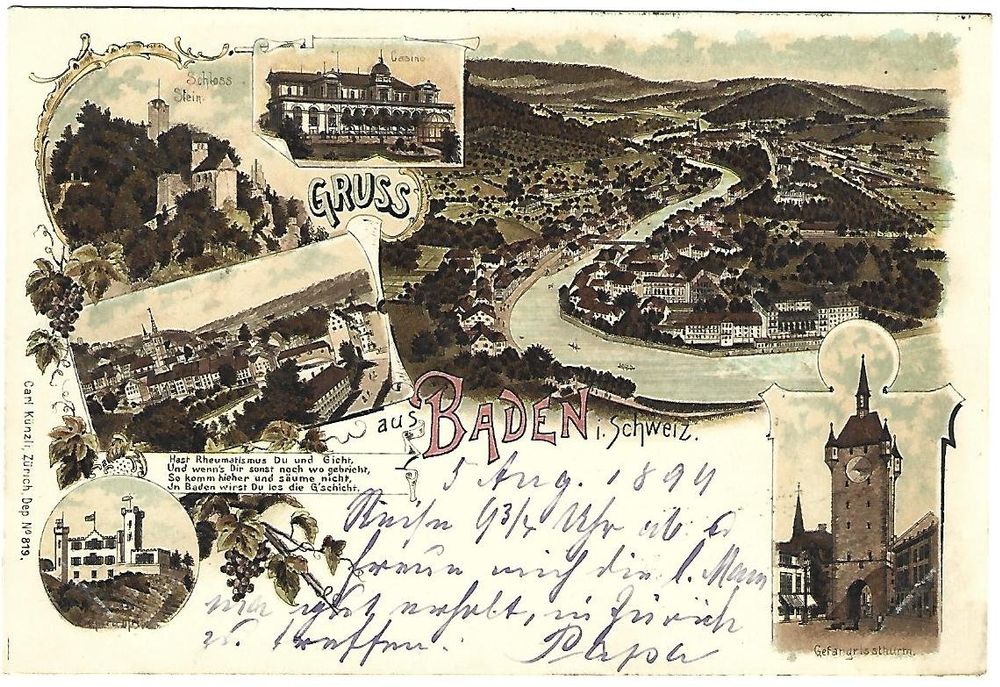 Schloss
Stein.
Casino
GRUSS
aus BADEN i. Schweiz.
Hast Rheumatismus Du und Gicht,
Und wenn's Dir sonst noch wo gebricht,
So komm hieher und säume nicht,
Jn Baden wirst Du los die G'schicht.
Carl Künzli, Zürich, Dep Nº 819.
Gefangnissthurm.
5 Aug. 1899
Reise 9 3/4 Uhr ab &
freue mich die l. Mama
gut erholt, in Zürich
zu treffen.
Papa